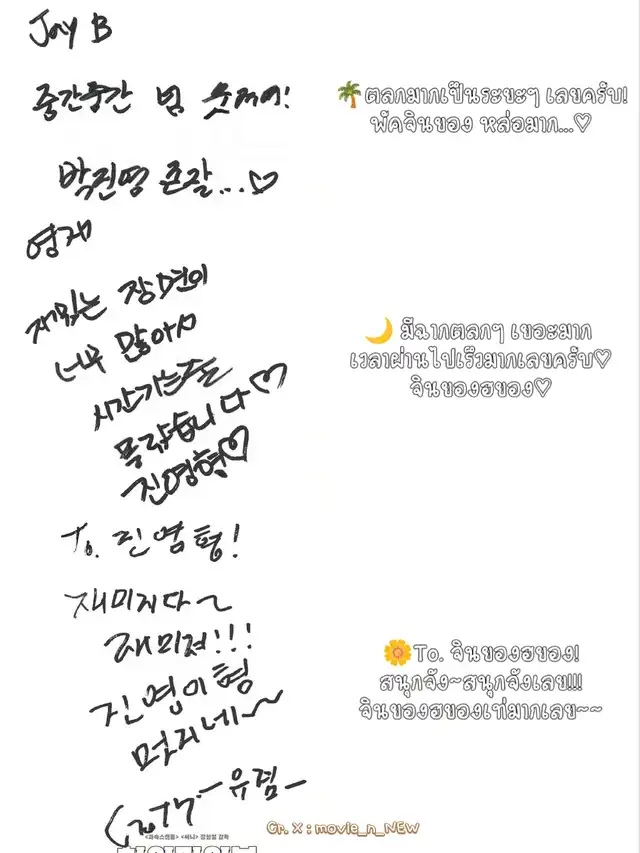 Jay B
중간중간 넘 웃겨여!
박진영 존잘...♡
🌴ตลกมากเป็นระยะๆ เลยครับ!
พัคจินยอง หล่อมาก...♡
영재
재밌는 장면이
너무 많아서
시간가는줄
몰랐습니다♡
진영형♡
🌙 มีฉากตลกๆ เยอะมาก
เวลาผ่านไปเร็วมากเลยครับ♡
จินยองฮยอง♡
To. 진영형!
재미지다~
재미져!!!
진영이형
멋지네~~
유겸
🌼To. จินยองฮยอง!
สนุกจัง~สนุกจังเลย!!!
จินยองฮยองเท่มากเลย~~
<과속스캔들> <써니> 강형철 감독
Cr. X : movie_n_NEW